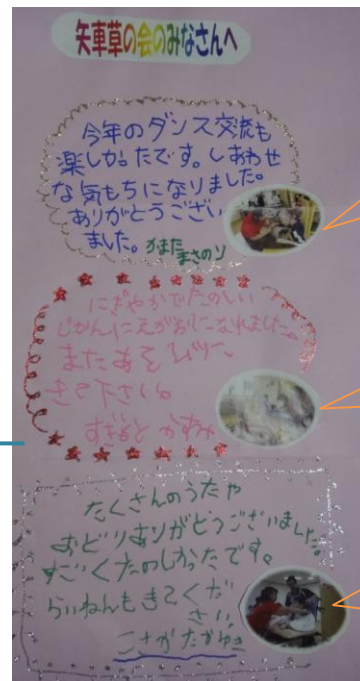 矢車草の会のみなさんへ
今年のダンス交流も
楽しかったです。しあわせ
な気もちになりました。
ありがとうござい
ました。かまた
まさのり
にぎやかでたのしい
じかんにえがおになれました。
またあそびに
きて下さい。
すぎもと かずみ
たくさんのうたや
おどりありがとうございました。
すごくたのしかったです。
らいねんもきてくだ
さい。
こさかたかゆき